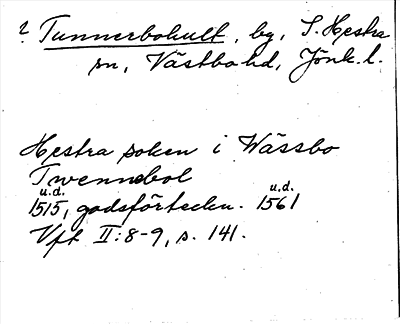 ? Tunnerbohult, by, S. Hestra
sn, Västbo hd, Jönk. l.
Hestra soken i Wässbo
Twennebol
u.d. u.d.
1515, godsförteckn. 1561
Vft II:8-9, s. 141.